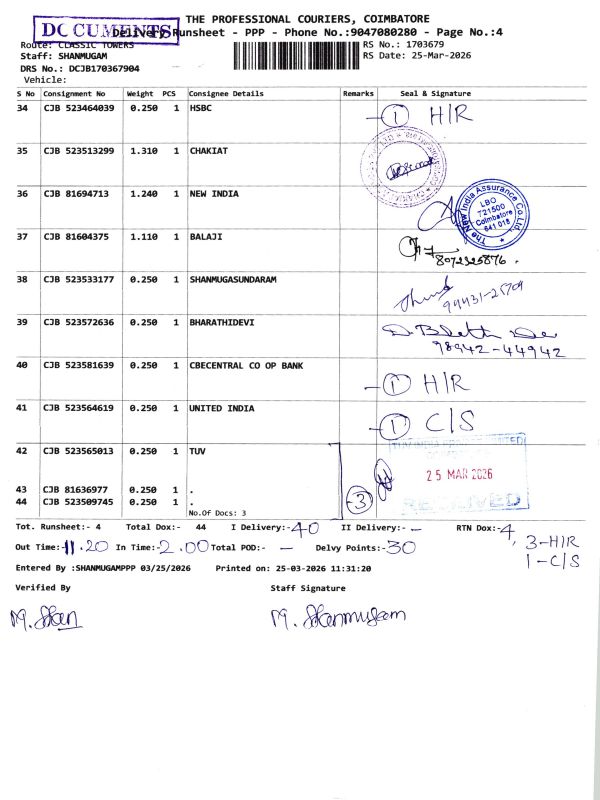 THE PROFESSIONAL COURIERS, COIMBATORE
DOCUMENTS
Delivery Runsheet - PPP - Phone No.:9047080280 - Page No.:4
Route: CLASSIC TOWERS
RS No.: 1703679
Staff: SHANMUGAM
RS Date: 25-Mar-2026
DRS No.: DCJB170367904
Vehicle:
S No Consignment No Weight PCS Consignee Details Remarks Seal & Signature
34 CJB 523464039 0.250 1 HSBC - 1 H/R
35 CJB 523513299 1.310 1 CHAKIAT
36 CJB 81694713 1.240 1 NEW INDIA
The New India Assurance Co.Ltd.
LBO
721500
Coimbatore
641 018
37 CJB 81604375 1.110 1 BALAJI
8072325876.
38 CJB 523533177 0.250 1 SHANMUGASUNDARAM
99431-25709
39 CJB 523572636 0.250 1 BHARATHIDEVI
98942-44942
40 CJB 523581639 0.250 1 CBECENTRAL CO OP BANK - 1 H/R
41 CJB 523564619 0.250 1 UNITED INDIA - 1 C/S
42 CJB 523565013 0.250 1 TUV
25 MAR 2026
RECEIVED
43 CJB 81636977 0.250 1 .
44 CJB 523509745 0.250 1 .
-3
No.Of Docs: 3
Tot. Runsheet:- 4 Total Dox:- 44 I Delivery:- 40 II Delivery:- - RTN Dox:- 4, 3-H/R
1-C/S
Out Time: 11.20 In Time:- 2.00 Total POD:- - Delvy Points:- 30
Entered By :SHANMUGAMPPP 03/25/2026 Printed on: 25-03-2026 11:31:20
Verified By Staff Signature
M. Shan M. Shanmugam